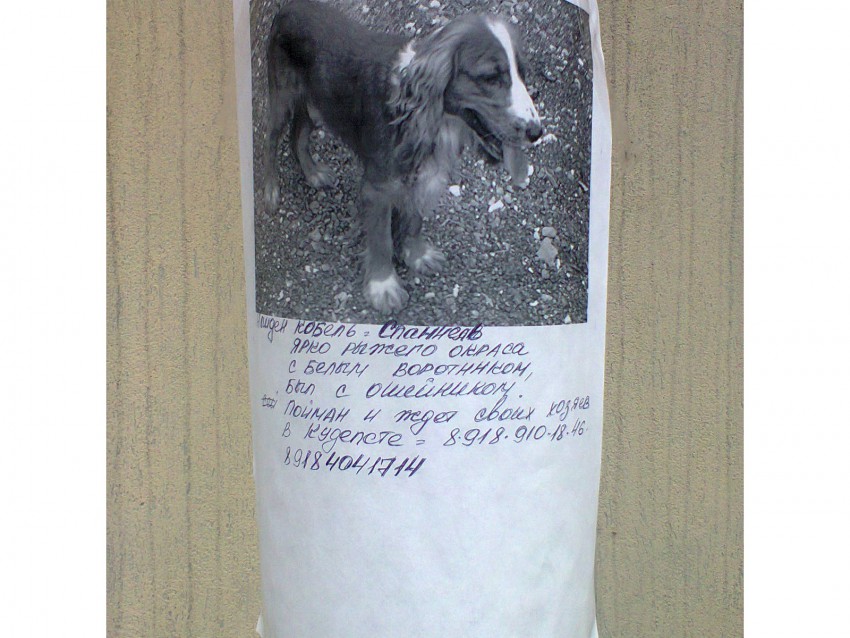 Найден кобель = Спаниель
ярко рыжего окраса
с белым воротником,
был с ошейником.
Пойман и ждет своих хозяев
в Кудепсте = 8-918-910-18-46-
89184041714